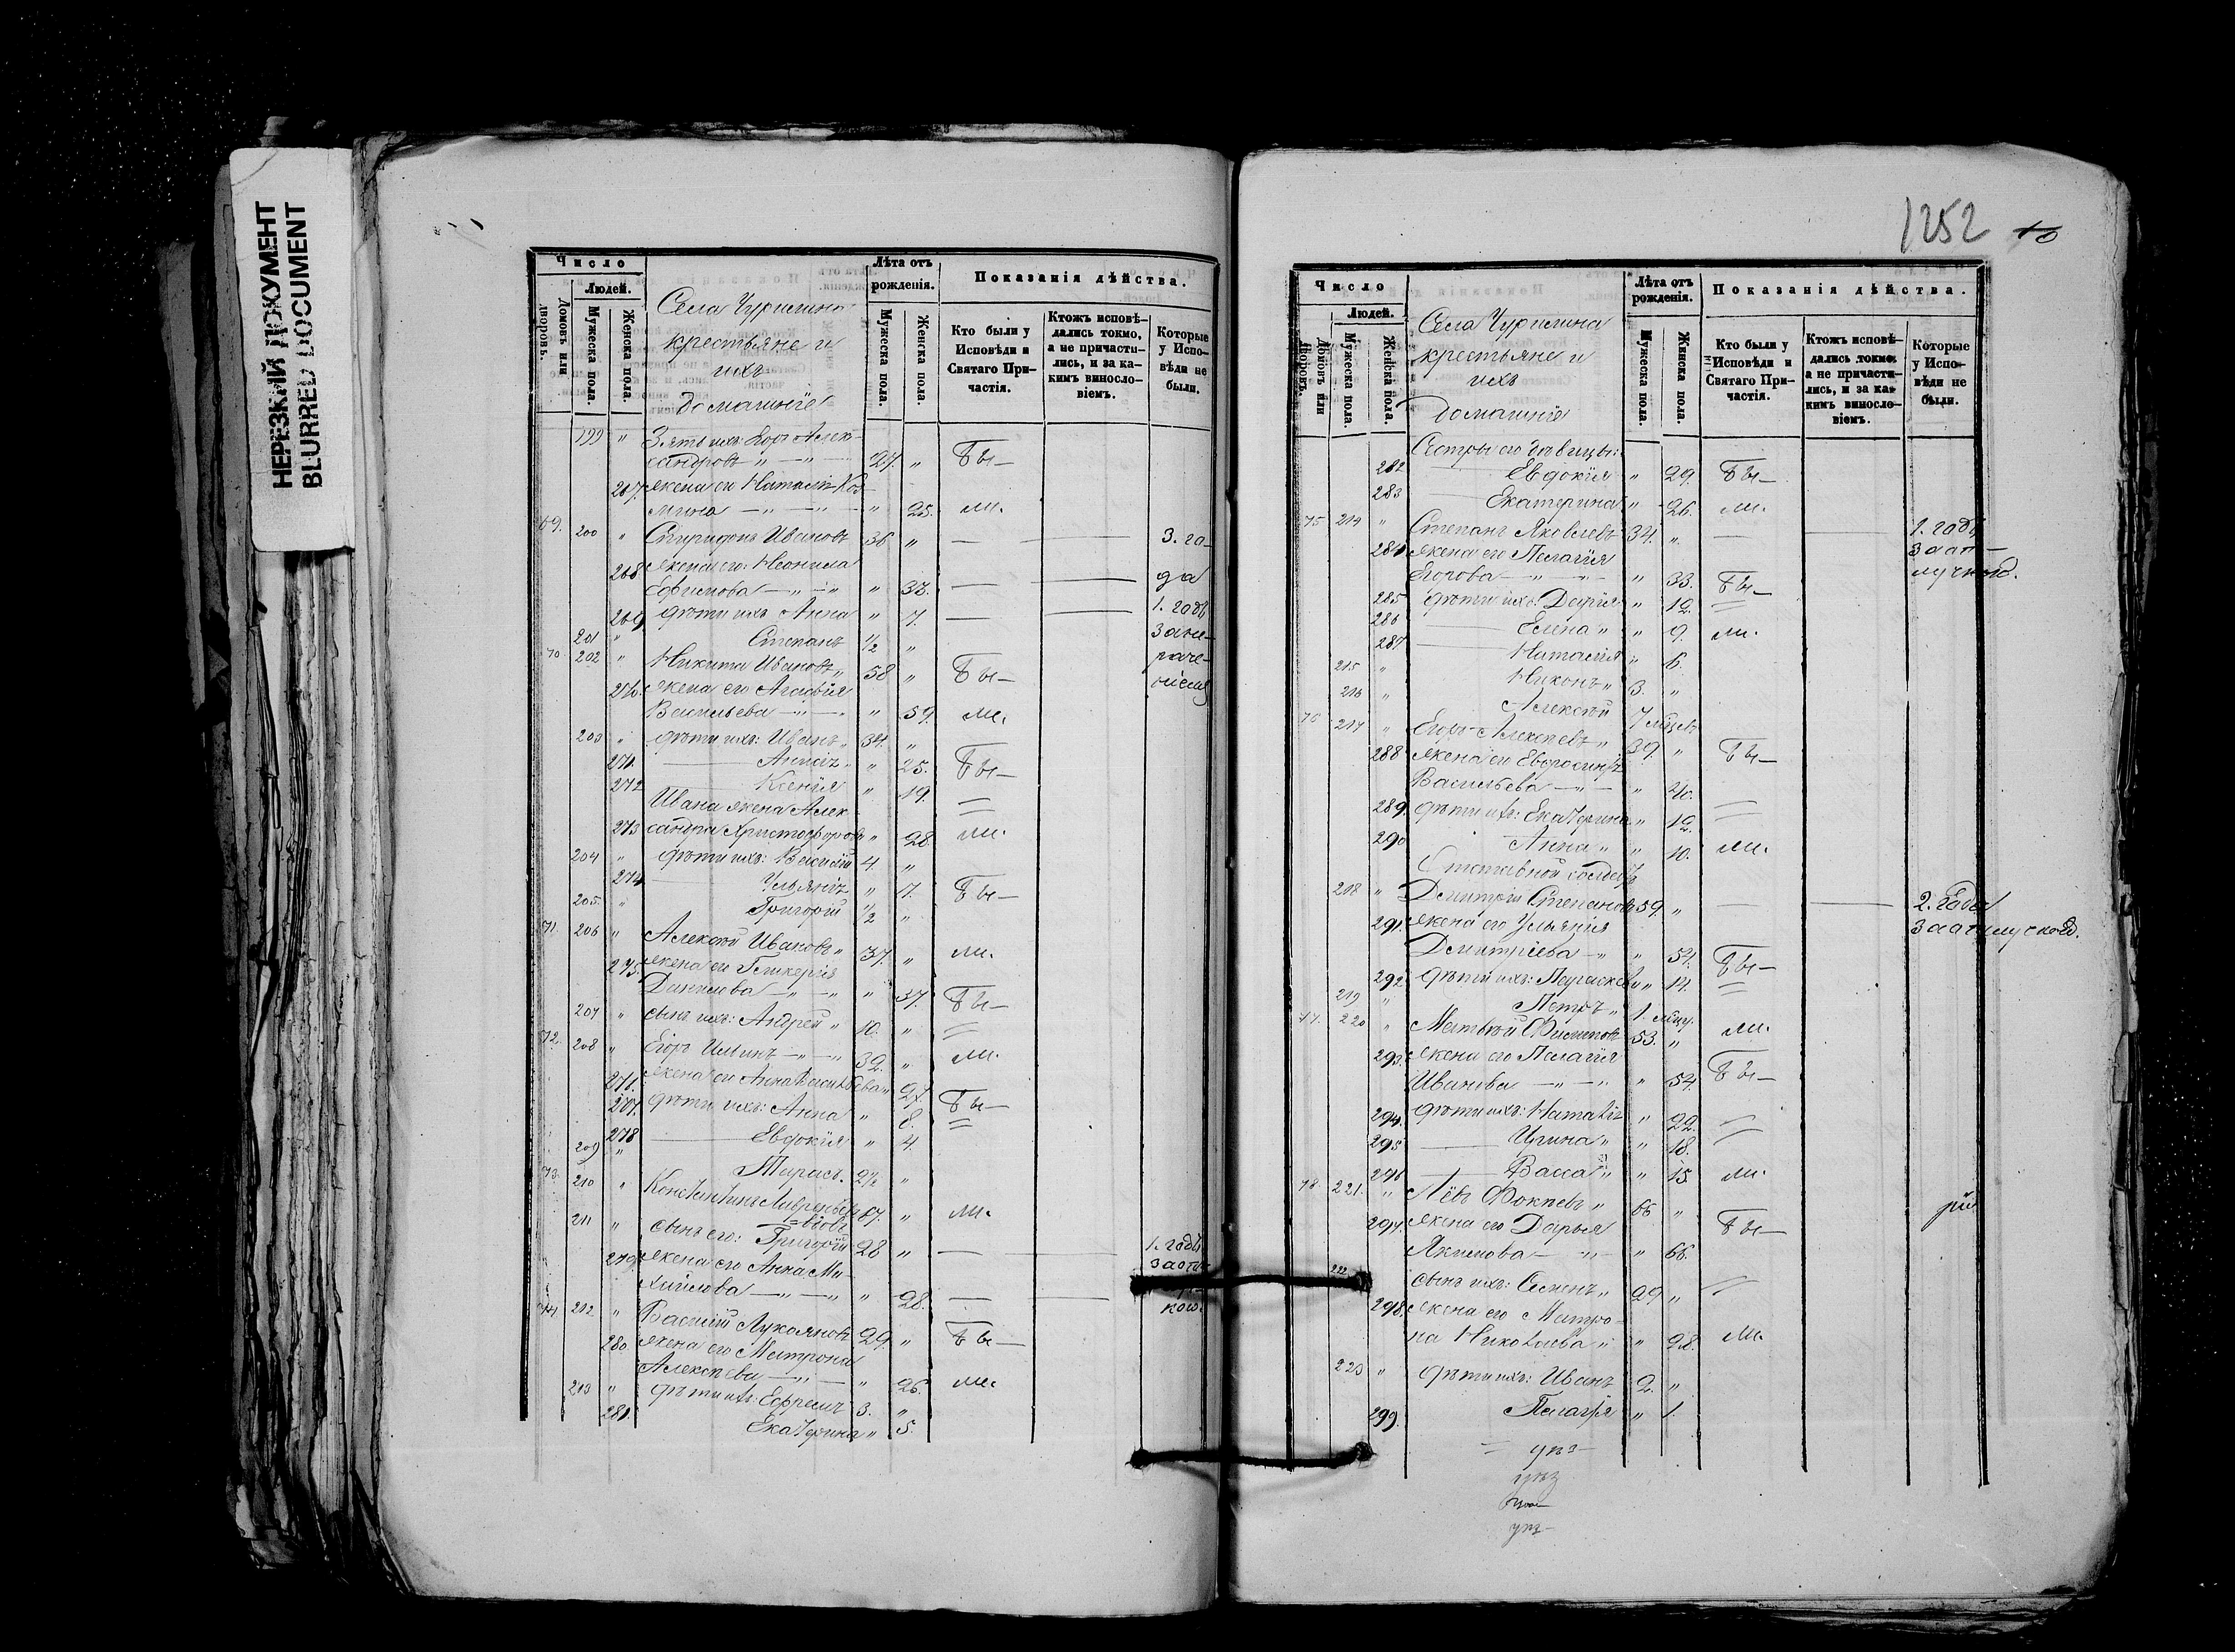 НЕРЕЗКИЙ ДОКУМЕНТ
BLURRED DOCUMENT
Число
Людей.
Домовъ или дворовъ.
Мужеска пола.
Женска пола.
Села Чурилина
крестьяне и
ихъ
домашнiе
Лѣта отъ рожденiя.
Мужеска пола.
Женска пола.
Показанiя дѣйства.
Кто были у Исповѣди и Святаго Причастiя.
Ктожъ исповѣдались токмо, а не причастились, и за какимъ винословiемъ.
Которые у Исповѣди не были.
199 " Зять ихъ: Егоръ Алек-
сандровъ " — " 27. " Бы—
267. жена его Наталiя Коз-
мина — " — " — " 25. ли.
69. 200 " Спиридонъ Ивановъ 36 " — — 3. го-
268 жена его: Неонила
Ефимова — " — " " 33. — — да
269 дѣти ихъ Анна " 7. — — 1. годъ
201 " Степанъ 1/2 " за не-
70. 202 " Никита Ивановъ " 58 " Бы— раче-
270. жена его Агафiя нiемъ
Васильева — " — " 59. ли.
203 " дѣти ихъ: Иванъ " 34. "
271. — Анисiя " " 25. Бы—
272 — Ксенiя " 19. =
Ивана жена Алек-
273 сандра Христофорова " 28. ли.
204 " дѣти ихъ: Василiй 4. "
274 — Ульянiя " 7. Бы—
205. " Григорiй 1/2 "
71. 206 " Алексѣй Ивановъ " 37. " ли.
275. жена его Гликерiя
Данилова — " — " " 37. Бы—
207 " сынъ ихъ: Андрей " 10. " =
72. 208 " Егоръ Ильинъ — " — " 32. " ли.
276. жена его Анна Васильева " 27. Бы—
277. дѣти ихъ: Анна " 8. =
278 — Евдокiя " 4.
209 " Тарасъ. 2 1/2 "
73. 210 " Константинъ Лаврентье-
вiовъ 67. " ли.
211 " сынъ его: Григорiй 28 " — — 1. годъ
279. жена его Анна Ми- за отлу-
хайлова — " — " " 28. — — кою.
74. 212 " Василiй Лукояновъ 29. " Бы—
280. жена его Матрона
Алексѣева — " — " 26. ли.
213 " дѣти ихъ: Ефремъ 3. "
281. Екатерина " 5.
1252 10
Число
Людей.
Домовъ или дворовъ.
Мужеска пола.
Женска пола.
Села Чурилина
крестьяне и
ихъ
домашнiе
Лѣта отъ рожденiя.
Мужеска пола.
Женска пола
Показанiя дѣйства.
Кто были у Исповѣди и Святаго Причастiя.
Ктожъ исповѣдались токмо, а не причастились, и за какимъ винословiемъ.
Которые у Исповѣди не были.
Сестры его дѣвицы:
282 — Евдокiя " 29. Бы—
283 — Екатерина " 26. ли.
75 214 " Степанъ Яковлевъ 34. " — — 1. годъ
284 жена его Пелагiя за от-
Егорова — " — " — " 33. Бы— лучкой.
285 дѣти ихъ: Дарiя " 12. =
286 — Елена " " 9. ли.
287 — Наталiя " 6.
215 " Никонъ " 3. "
216 " Алексѣй 7 мѣцевъ
76 217 " Егоръ Алексѣевъ " 39. " Бы—
288 жена его Евфросинiя
Васильева — " — " 40. =
289. дѣти ихъ: Екатерина " 12. =
290 Анна " " 10. ли.
Отставной солдатъ
218 " Димитрiй Степановъ 59. " — — 2. года
291. жена его Ульянiя за отлучкой.
Димитрiева — " " 54. Бы—
292. дѣти ихъ: Параскева " 14. =
219 " Петръ " 1. мцу.
77. 220 " Матвѣй Филиповъ 53. " ли.
293. жена его Пелагiя
Иванова — " — " — " 54. Бы—
294. дѣти ихъ: Наталiя " 22. =
295 — Ирина " " 18. =
296 — Васса " " 15 ли.
78. 221. " Левъ Фокѣевъ " 66 "
297. жена его Дарья Бы—
Якимова — " — " 66.
222 сынъ ихъ: Семенъ " 29 " =
298. жена его Матро-
на Николаева " " 28. ли.
223 " дѣти ихъ: Иванъ 2. "
299. Пелагiя " 1.